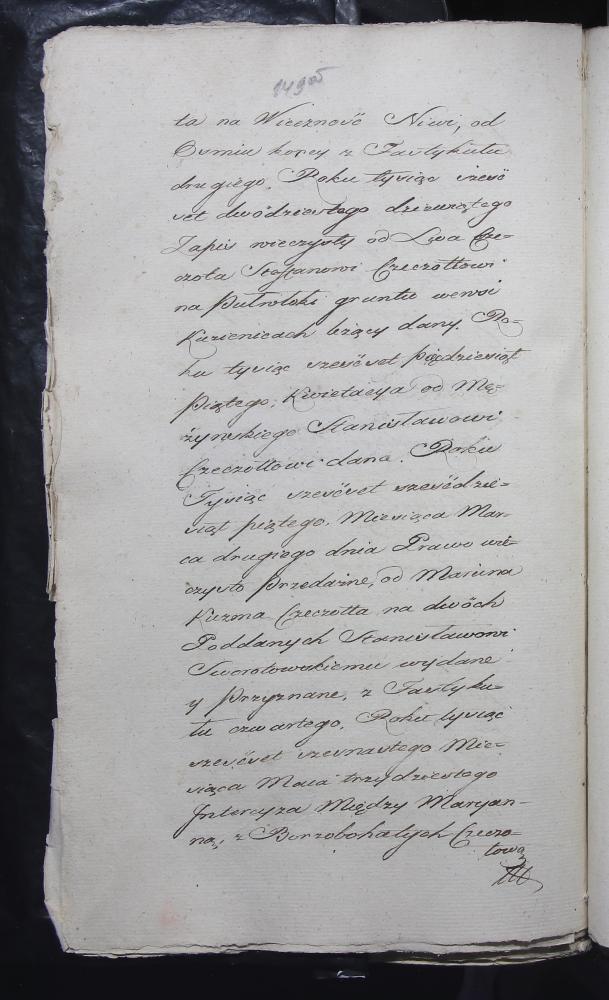 ta na Wieczność Niwi, od
Osmiu kopcy z Fastykułu
drugiego. Roku tysiąc sześć
set dwódziestego dziewiątego
Zapis wieczysty od Lwa Cze-
czota Stefanowi Czeczottowi
na Pułwłoki gruntu wewsi
Kuzienicach leżący dany. Ro-
ku tysiąc sześćset pięćdziesiąt
Piątego, Kwietacya od Mę-
żyńskiego Stanisławowi
Czeczottowi dana. Roku
Tysiąc sześćset sześćdzie-
siąt piątego, Miesiąca Mar-
ca drugiego dnia Prawo wie-
czysto Przedażne, od Marcina
Kuzma Czeczotta na dwóch
Poddanych Stanisławowi
wydane
y Przyznane, z Fastyku-
łu czwartego. Roku tysiąc
sześćset szesnastego Mie-
siąca Maia trzydziestego
Intercyza Między Maryan-
ną, z Borzobohatych Czeczo-
tową